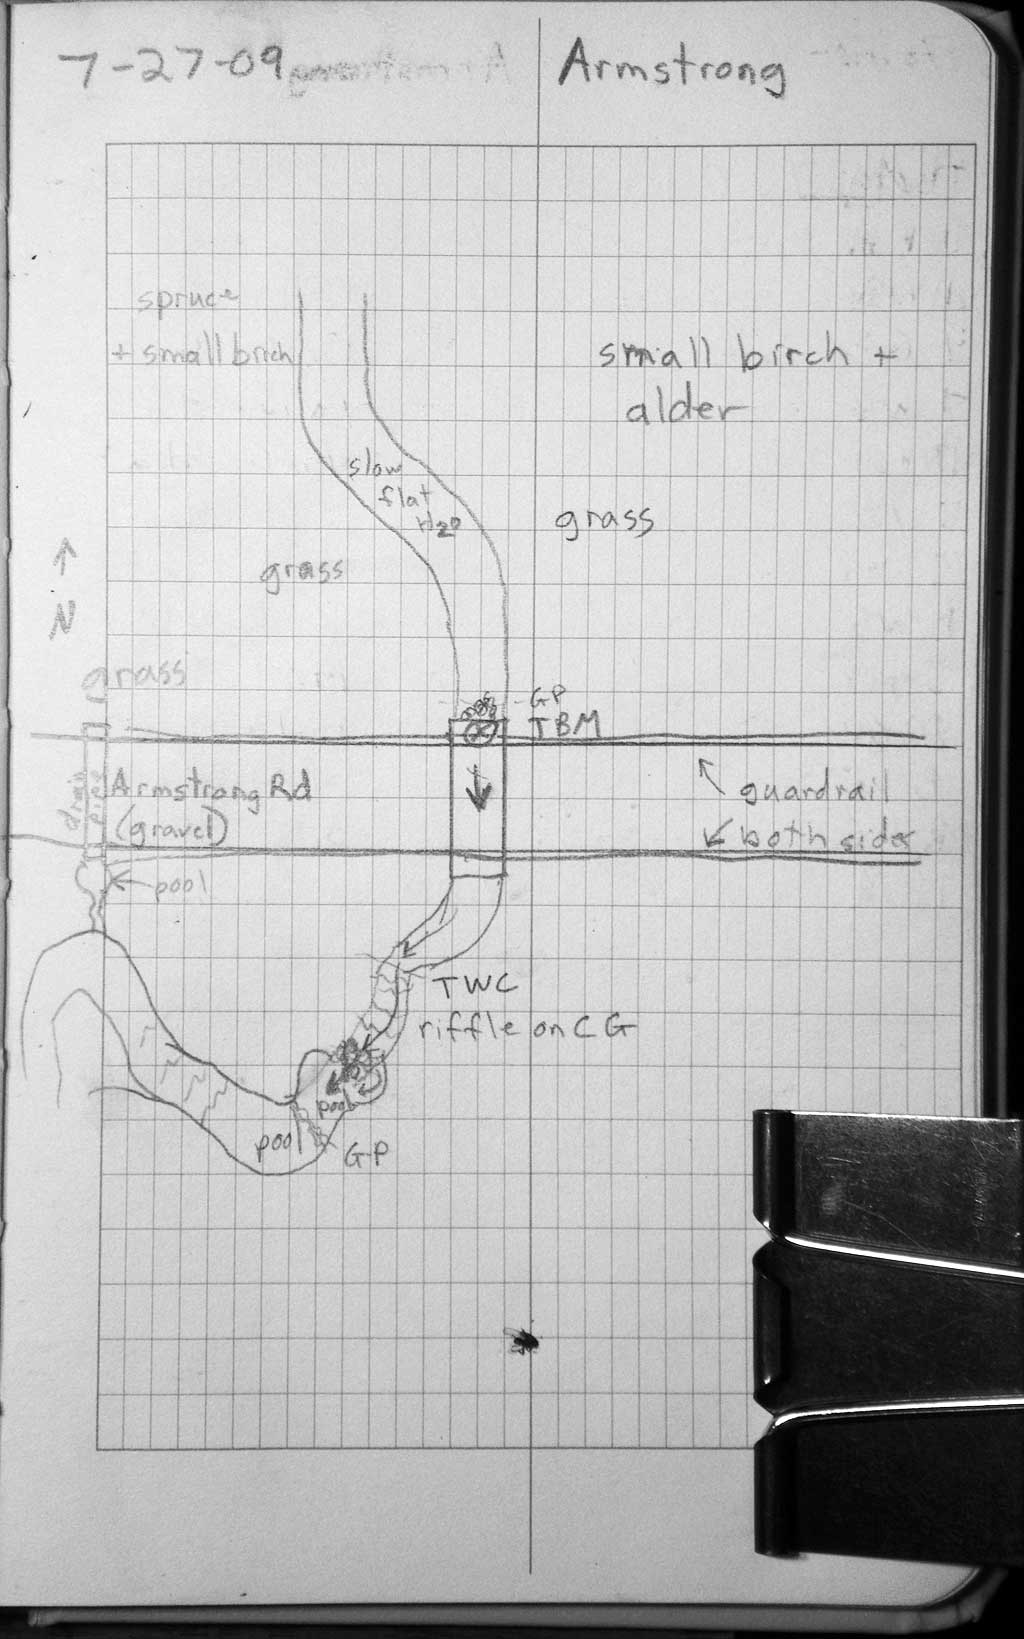 7-27-09
Armstrong
spruce
+ small birch
small birch +
alder
slow
flat
H2O
grass
grass
N
grass
GP
TBM
Armstrong Rd
(gravel)
guardrail
both sides
pool
TWC
riffle on CG
pool
pool
GP